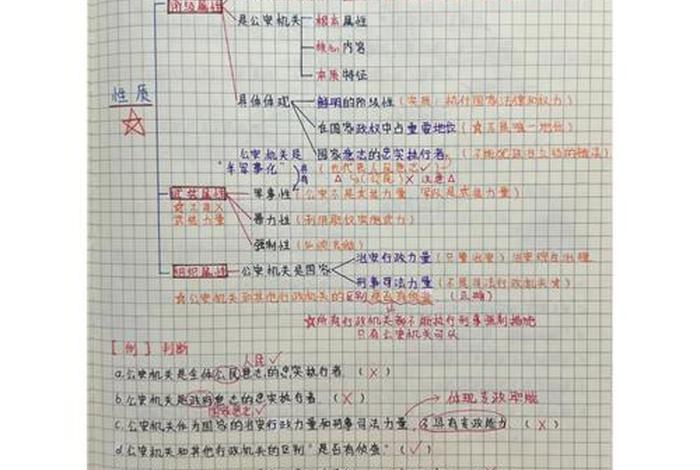 阶级属性
是公安机关 根本属性
核心内容
本质特征
性质
具体体现 鲜明的阶级性（实质：执行国家法律和权力）
在国家政权中占重要地位（☆不是唯一地位）
公安机关是 国家意志的忠实执行者
"半军事化"
△ 与（公民）× 注意△
武装属性 军事性（公安不是武装力量 军队是武装力量）
☆不是×
武装力量 暴力性
强制性
组织属性 公安机关是国家 治安行政力量（只管治安）
刑事司法力量（不是司法行政机关）
☆公安机关和其他行政机关的区别是否有侦查（正确）
☆所有行政机关都不能执行刑事强制措施
只有公安机关可以
[例] 判断
人民✓
a.公安机关是全体公民意志的忠实执行者（×）
b.公安机关是政府意志的忠实执行者（×）
国家意志✓ 体现专政职能
c.公安机关作为国家的治安行政力量和刑事司法力量，不具有专政能力（×）
d.公安机关和其他行政机关的区别"是否有侦查"（✓）